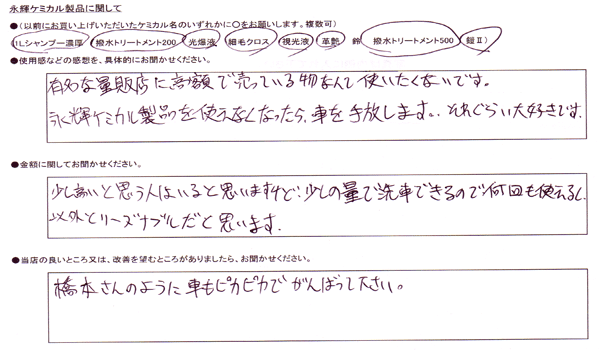 永輝ケミカル製品に関して
●(以前にお買い上げいただいたケミカル名のいずれかに○をお願いします。複数可)
(1Lシャンプー濃厚 撥水トリートメント200 光爆液 細毛クロス 視光液 革艶 鈴 撥水トリートメント500 鎧Ⅱ)
●使用感などの感想を、具体的にお聞かせください。
有名な量販店に高額で売っている物なんて使いたくないです。
永輝ケミカル製品を使えなくなったら、車を手放します。それぐらい大好きです。
●金額に関してお聞かせください。
少し高いと思う人はいると思いますけど、少しの量で洗車できるので何回も使えるし
以外とリーズナブルだと思います。
●当店の良いところ又は、改善を望むところがありましたら、お聞かせください。
橋本さんのように車もピカピカでがんばって下さい。